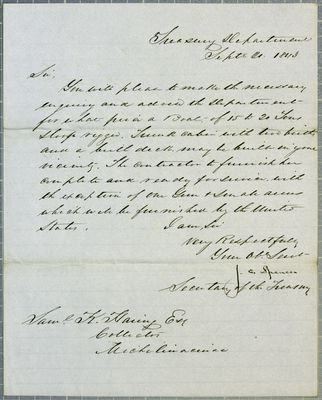 Treasury Department
Sept. 21. 1843
Sir,
You will please to make the necessary
enquiry and advise the Department
for what price a Boat of 15 to 20 Tons
Sloop rigged, Trunk cabin with two births
and a half deck may be built in your
vicinity. The contractor to furnish her
complete and ready for service with
the exception of one Gun & small arms
which will be furnished by the United
States.
I am Sir
Very Respectfully
Your Ob. Servt
J. C. Spencer
Secretary of the Treasury
Saml. K. Haring Esq
Collector
Michilimacinac